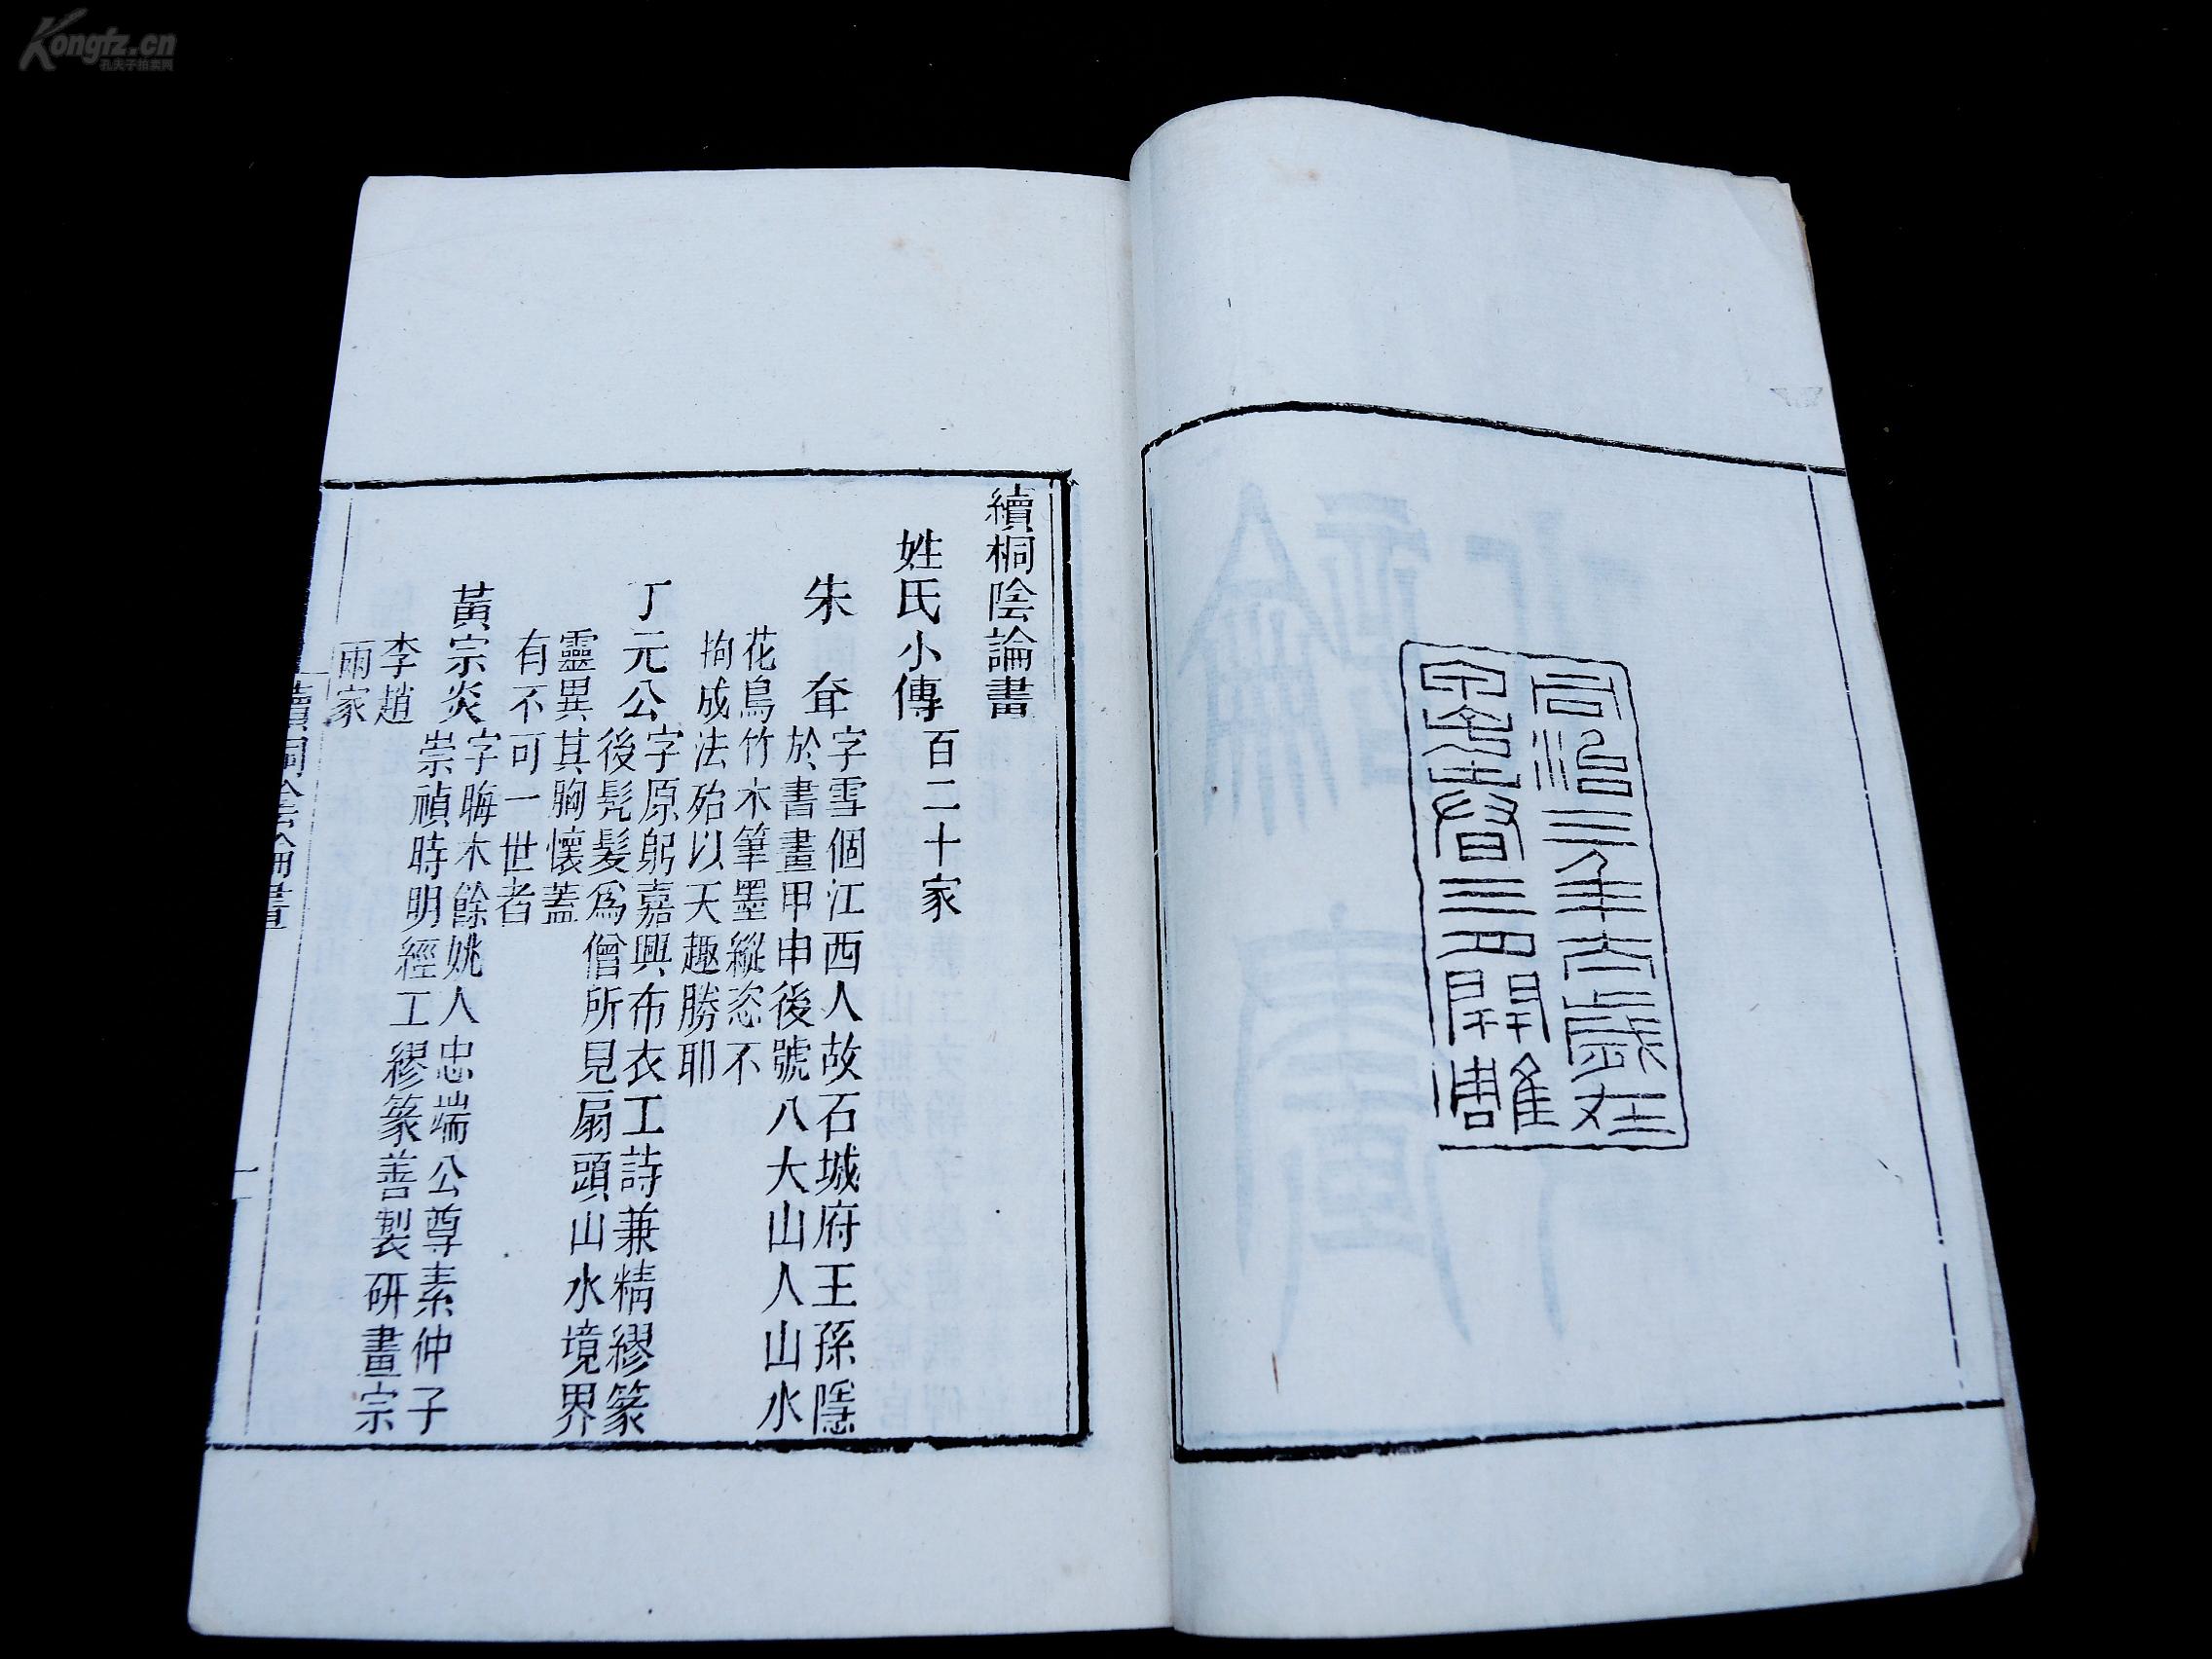 同治三年太歲在
甲子春三月開雕
續桐陰論畫
姓氏小傳百二十家
朱耷字雪個江西人故石城府王孫隱
於書畫甲申後號八大山人山水
花鳥竹木筆墨縱恣不
拘成法殆以天趣勝耶
丁元公字原躬嘉興布衣工詩兼精繆篆
後髡髮爲僧所見扇頭山水境界
靈異其胸懷蓋
有不可一世者
黃宗炎字晦木餘姚人忠端公尊素仲子
崇禎時明經工繆篆善製研畫宗
李趙
兩家
續桐陰論畫
一
Kongfz.cn
孔夫子拍卖网